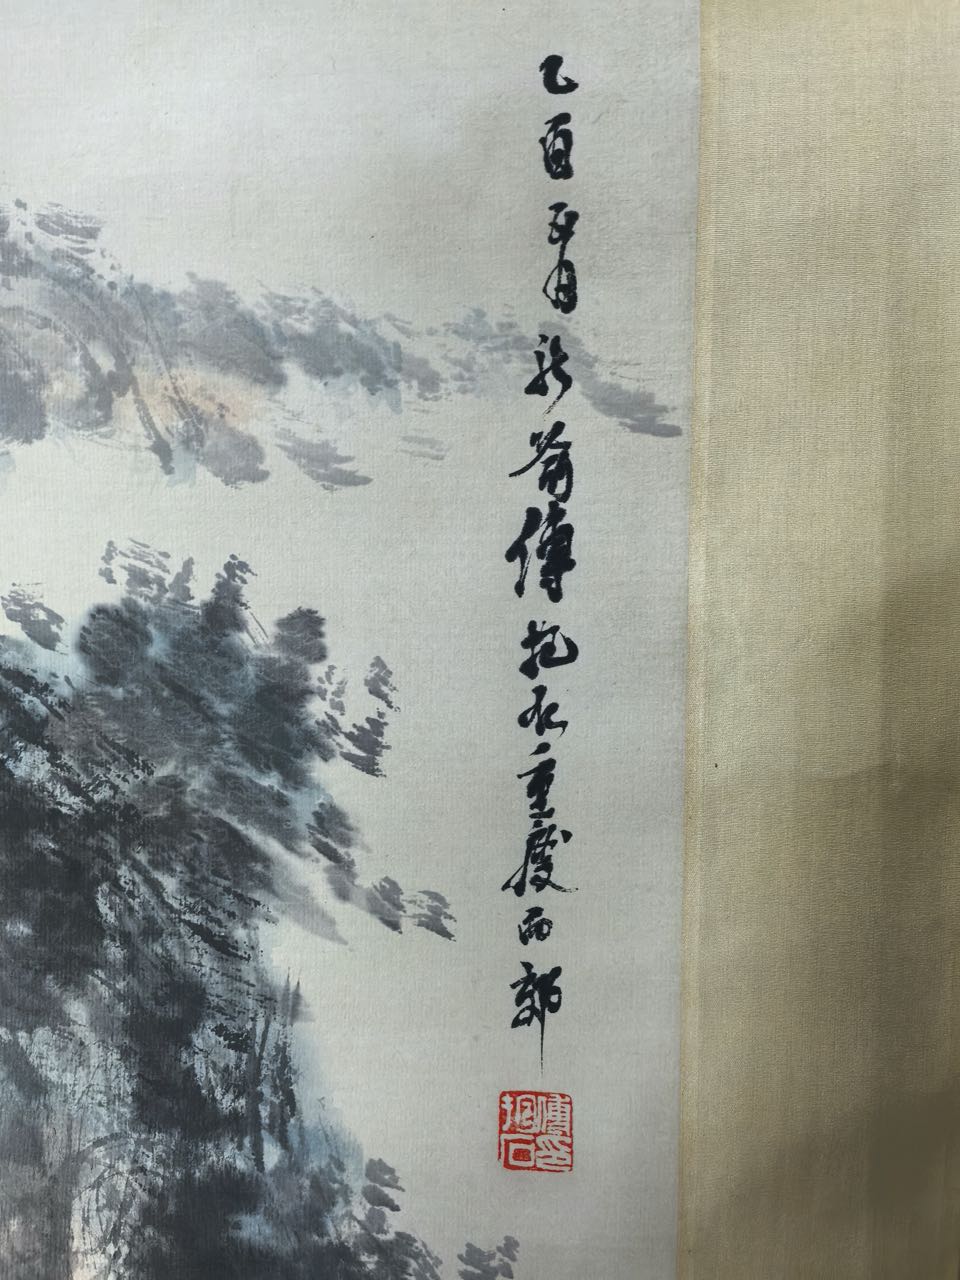 乙酉五月新喻傅抱石重慶西郊
傅抱石印